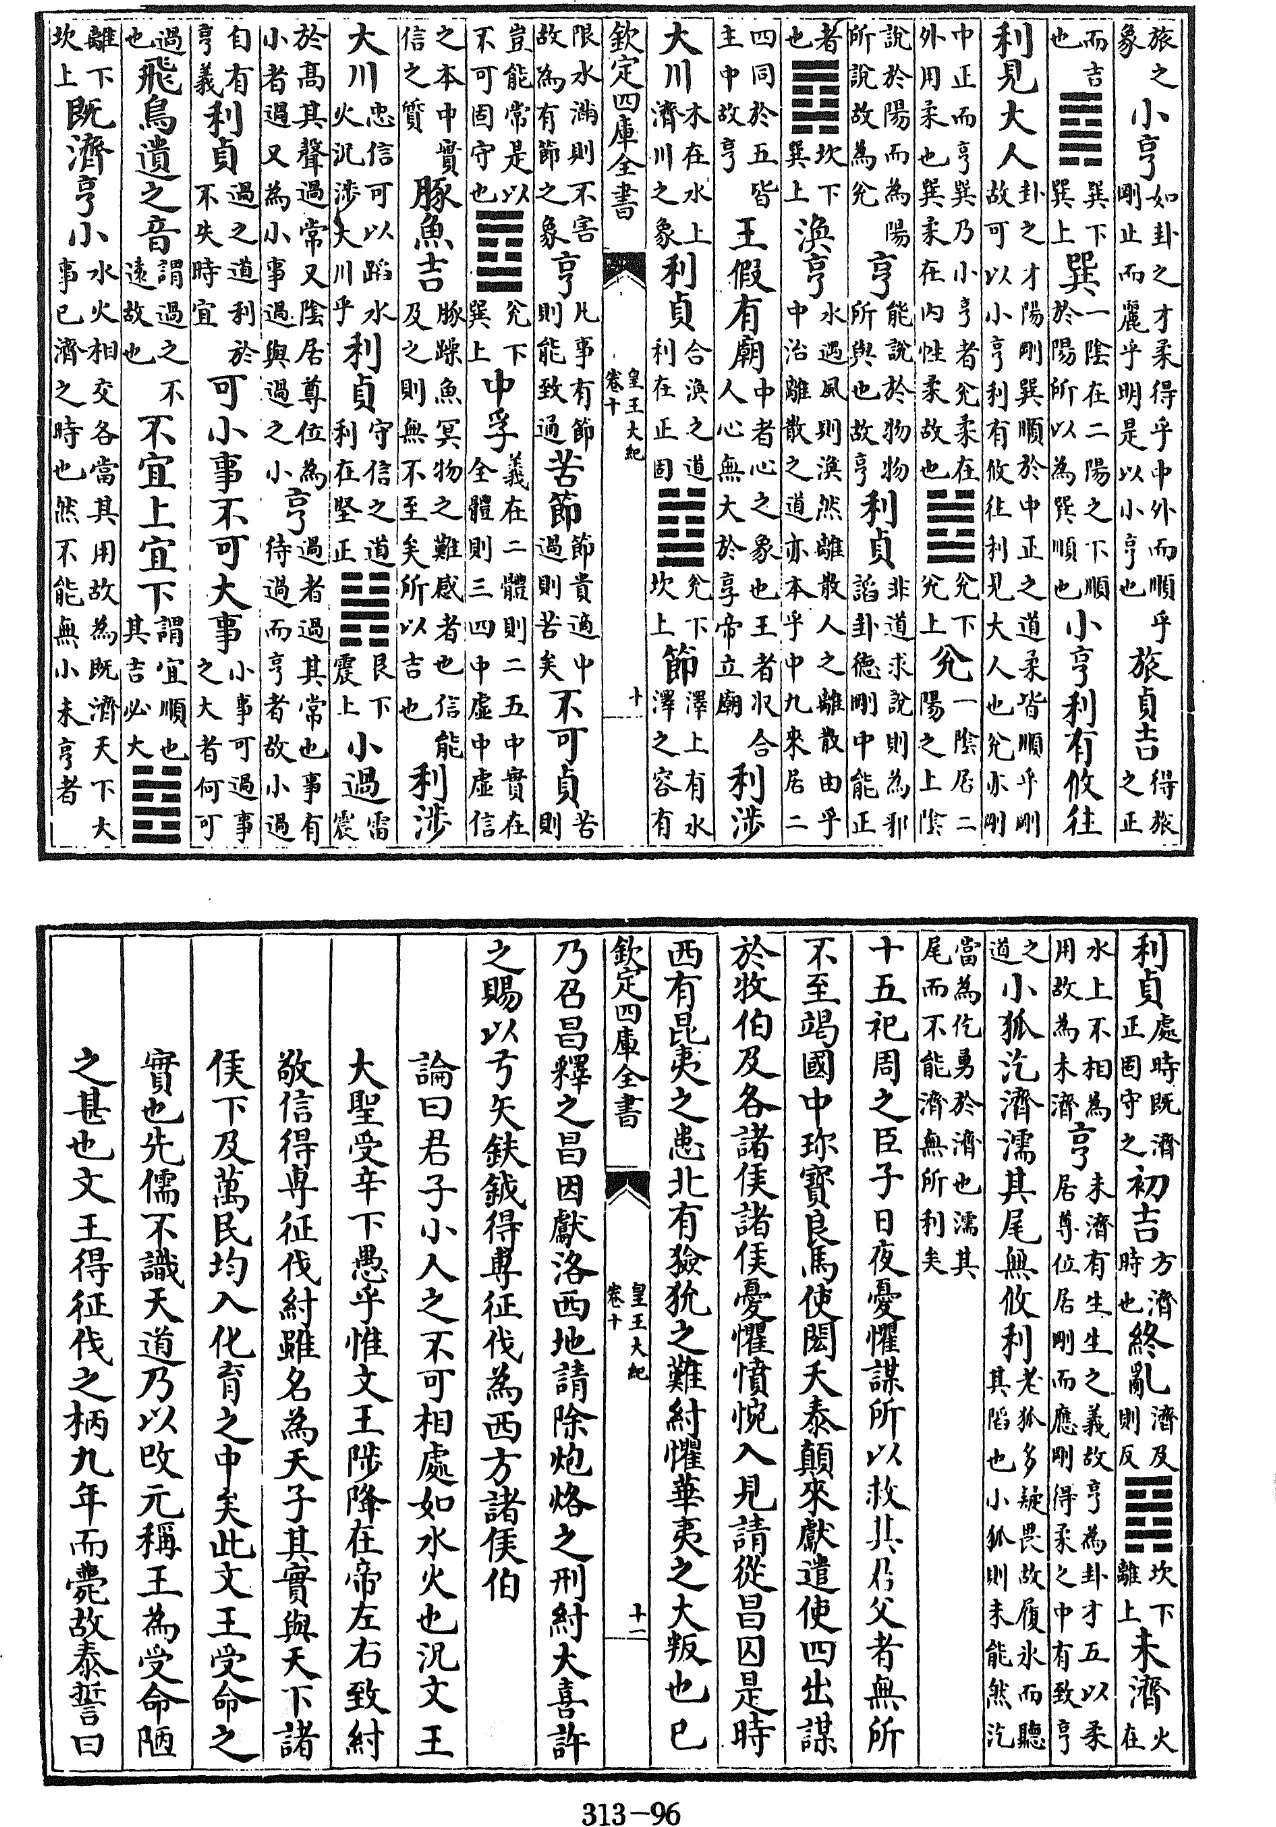 旅之象小亨如卦之才柔得乎中外而順乎剛止而麗乎明是以小亨也旅貞吉得旅之正
而吉也䷸巽下巽上巽一陰在二陽之下順於陽所以為巽順也小亨利有攸往
利見大人卦之才陽剛巽順於中正之道柔皆順乎剛故可以小亨利有攸往利見大人也兊亦剛
中正而亨巽乃小亨者兊柔在外用柔也巽柔在内性柔故也䷹兊下兊上兊一陰居二陽之上陰
說於陽而為陽所說故為兊亨能說於物物所與也故亨利貞非道求說則為邪謟卦德剛中能正
者也䷺坎下巽上渙亨水遇風則渙然離散人之離散由乎中治離散之道亦本乎中九來居二
四同於五皆主中故亨王假有廟中者心之象也王者収合人心無大於享帝立廟利涉
大川木在水上濟川之象利貞合渙之道利在正固䷻兊下坎上節澤上有水澤之容有
欽定四庫全書 皇王大紀 卷十 十
限水滿則不害故為有節之象亨凡事有節則能致通苦節節貴適中過則苦矣不可貞苦則
豈能常是以不可固守也䷼兊下巽上中孚義在二體則二五中實在全體則三四中虛中虛信
之本中實信之質豚魚吉豚躁魚冥物之難感者也信能及之則無不至矣所以吉也利涉
大川忠信可以蹈水火況涉大川乎利貞守信之道利在堅正䷽艮下震上小過雷震
於高其聲過常又陰居尊位為小者過又為小事過與過之小亨過者過其常也事有待過而亨者故小過
自有亨義利貞過之道利於不失時宜可小事不可大事小事可過事之大者何可
過也飛鳥遺之音謂過之不遠故也不宜上宜下謂宜順也其吉必大䷾
離下坎上既濟亨小水火相交各當其用故為既濟天下大事已濟之時也然不能無小未亨者
利貞處時既濟正固守之初吉方濟時也終亂濟及則反䷿坎下離上未濟火在
水上不相為用故為未濟亨未濟有生生之義故亨為卦才五以柔居尊位居剛而應剛得柔之中有致亨
之道小狐汔濟濡其尾無攸利老狐多疑畏故履氷而聽其陷也小狐則未能然汔
當為仡勇於濟也濡其尾而不能濟無所利矣
十五祀周之臣子日夜憂懼謀所以救其君父者無所
不至竭國中珍寶良馬使閎夭泰顛來獻遣使四出謀
於牧伯及各諸侯諸侯憂懼憤惋入見請從昌囚是時
西有昆夷之患北有獫狁之難紂懼華夷之大叛也已
欽定四庫全書 皇王大紀 卷十 十一
乃召昌釋之昌因獻洛西地請除炮烙之刑紂大喜許
之賜以弓矢鈇鉞得專征伐為西方諸侯伯
論曰君子小人之不可相處如水火也況文王
大聖受辛下愚乎惟文王陟降在帝左右致紂
敬信得專征伐紂雖名為天子其實與天下諸
侯下及萬民均入化育之中矣此文王受命之
實也先儒不識天道乃以改元稱王為受命陋
之甚也文王得征伐之柄九年而薨故泰誓曰
313-96